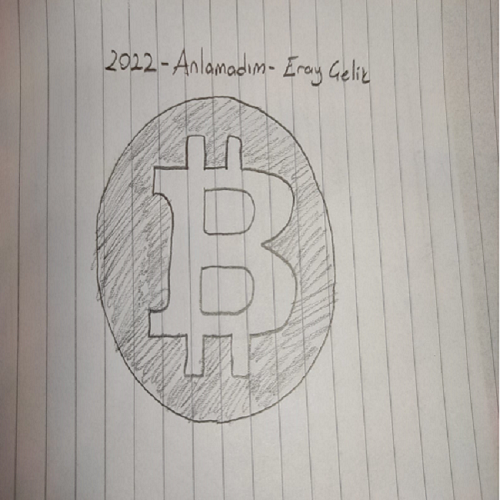 2022-Anlamadım-Eray Gelik